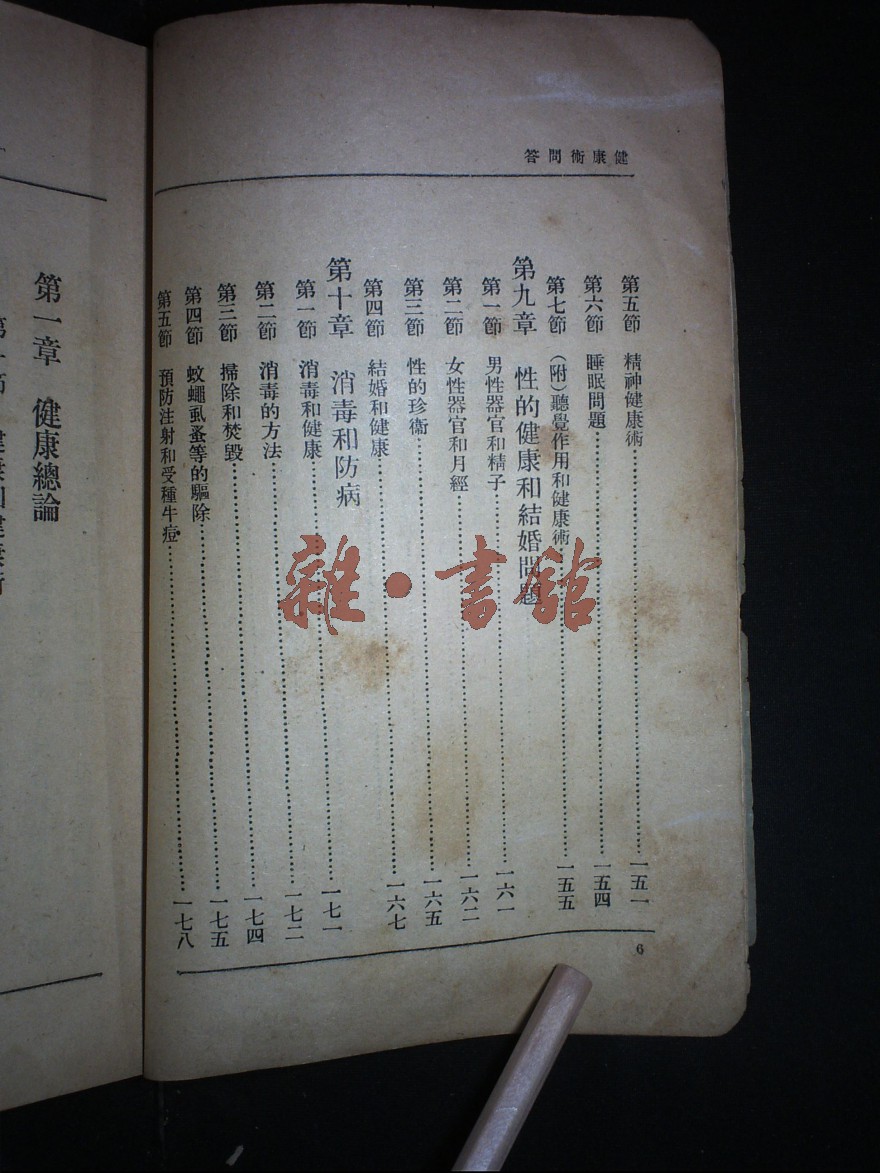 健康術問答
第五節 精神健康術……一五一
第六節 睡眠問題……一五四
第七節 (附)聽覺作用和健康術……一五五
第九章 性的健康和結婚問題
第一節 男性器官和精子……一六一
第二節 女性器官和月經……一六二
第三節 性的珍衞……一六五
第四節 結婚和健康……一六七
第十章 消毒和防病
第一節 消毒和健康……一七一
第二節 消毒的方法……一七二
第三節 掃除和焚毀……一七四
第四節 蚊蠅虱蚤等的驅除……一七五
第五節 預防注射和受種牛痘……一七八
6
第一章 健康總論
雜·書館